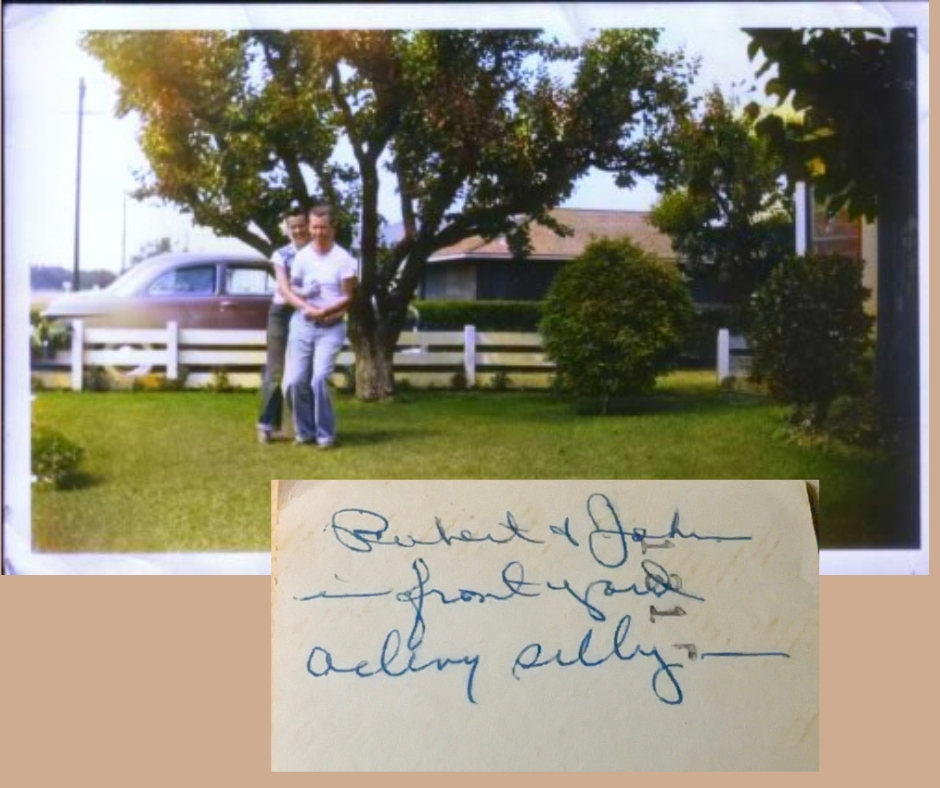 Robert & John
in front yard
acting silly —